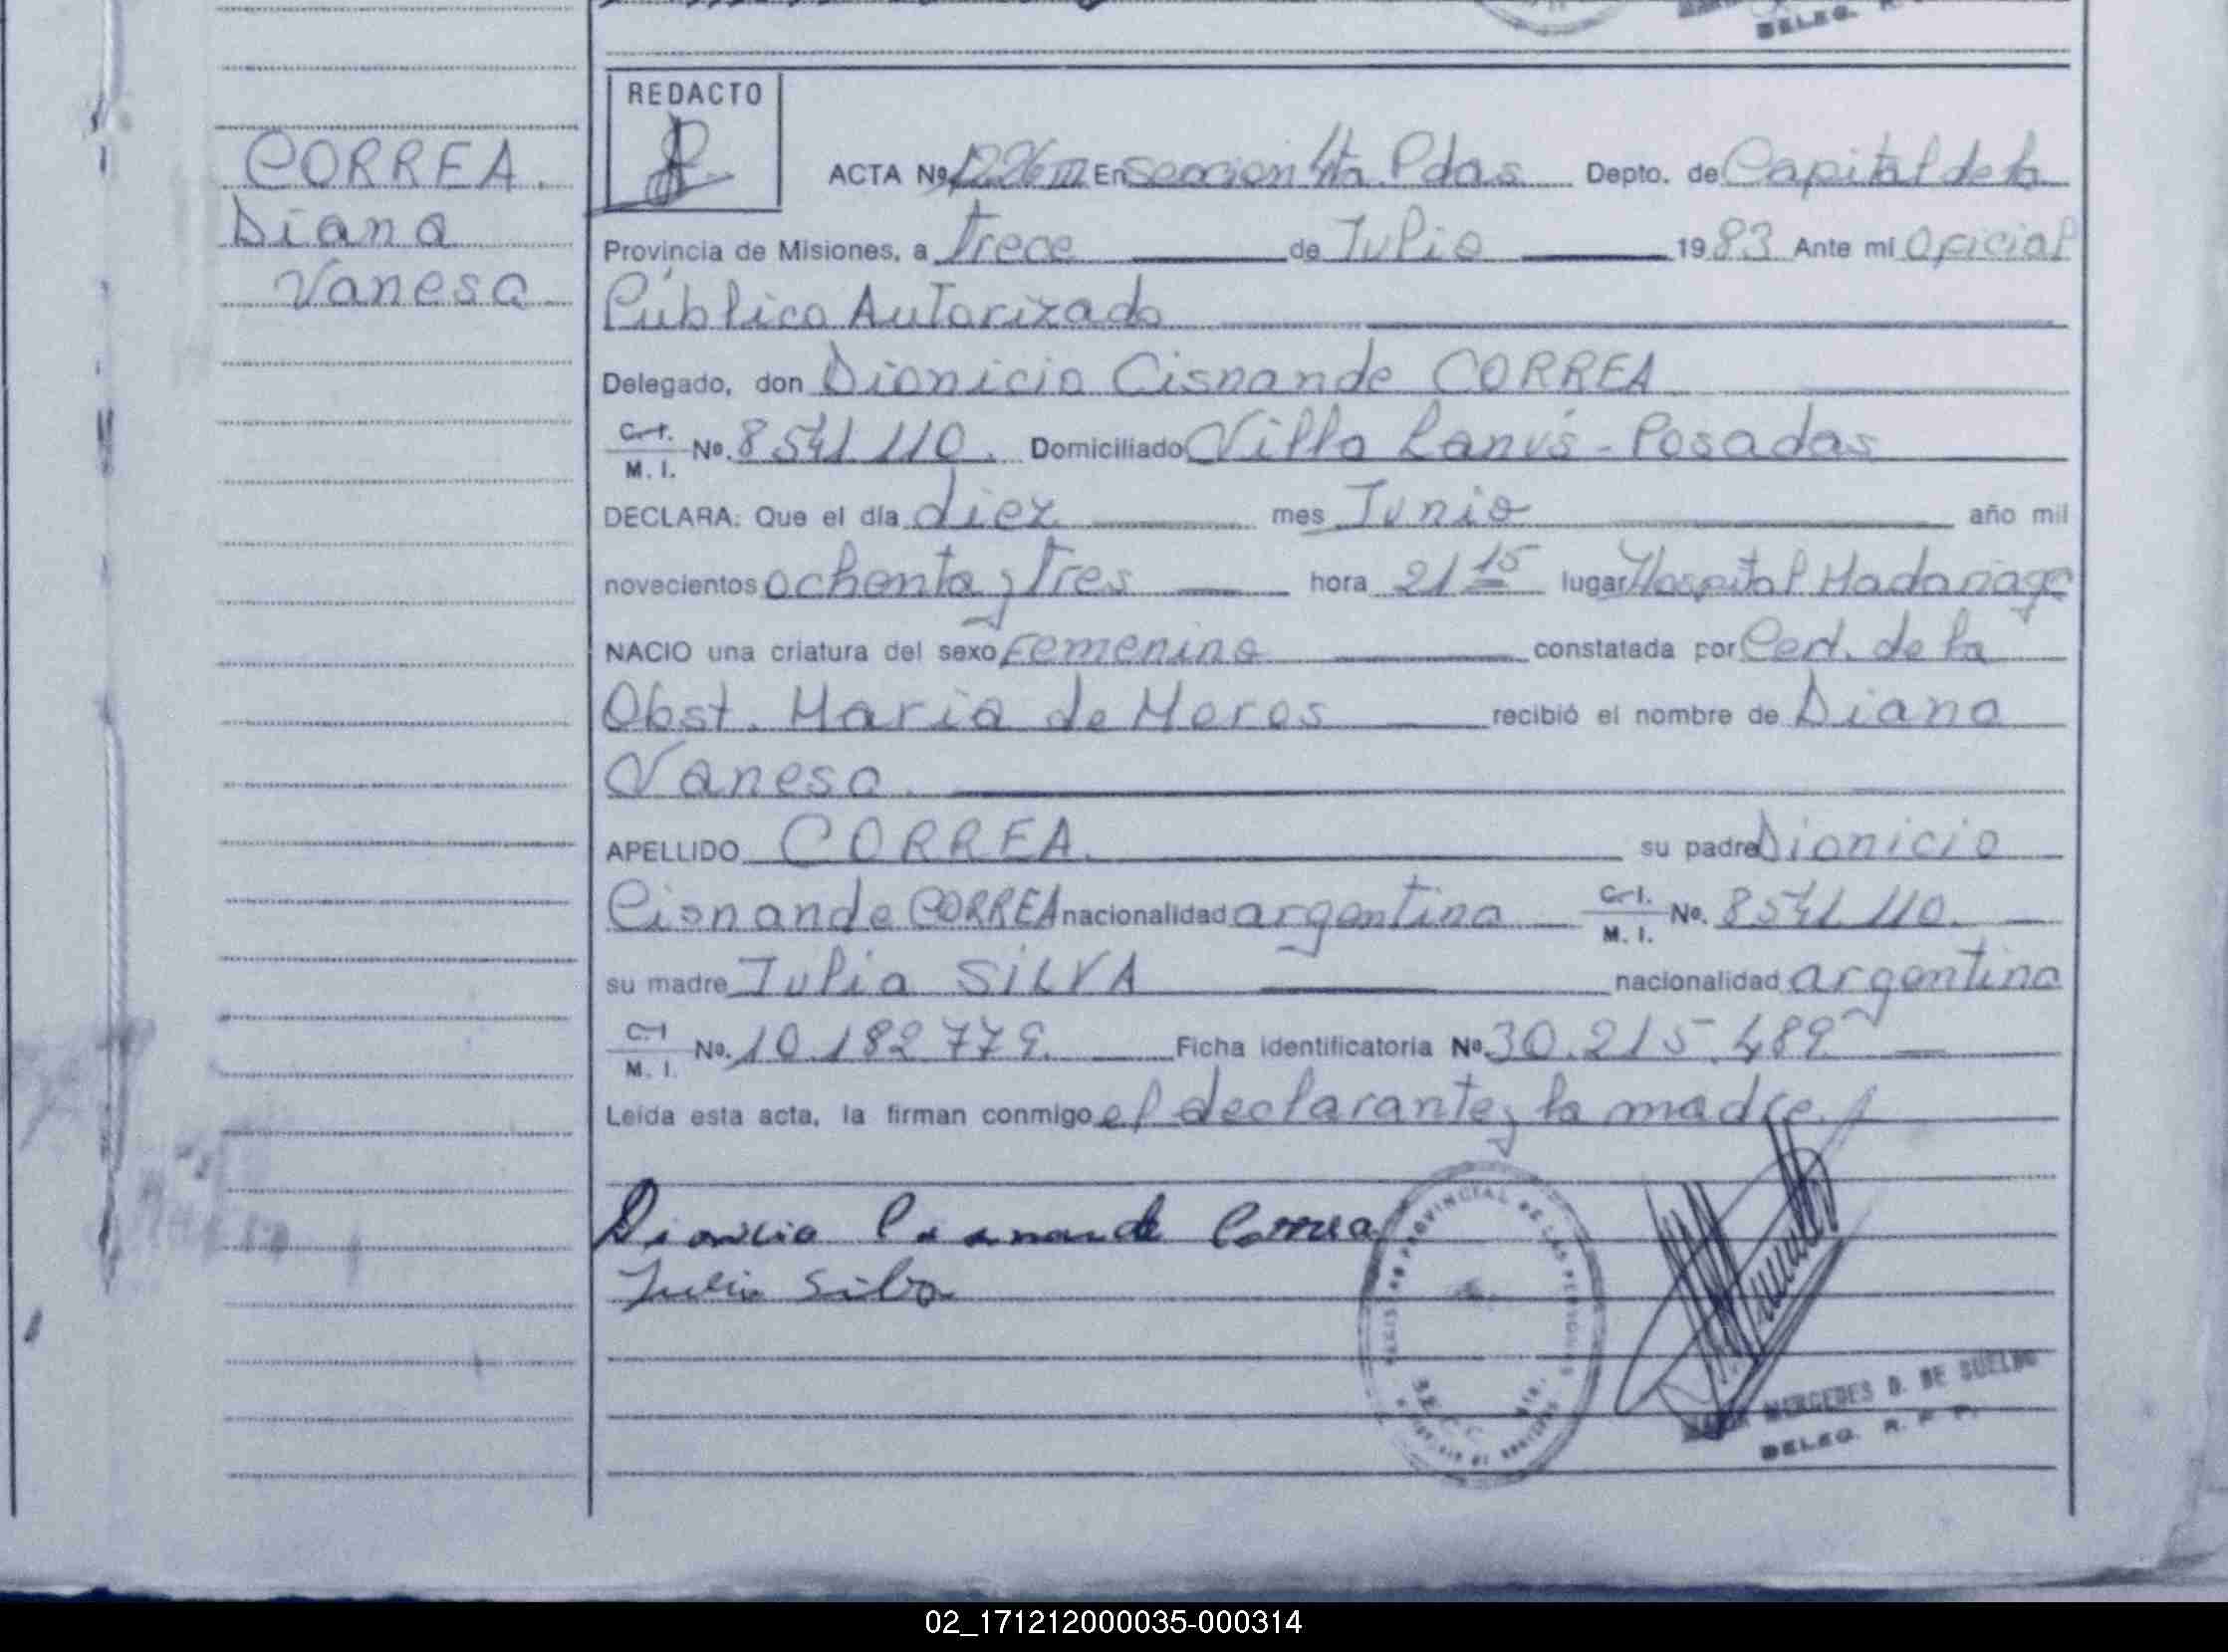 DELEG. R.
REDACTO
CORREA.
Diana
Vanesa
ACTA Nº 1226 III En Seccion 4ta. Pdas Depto. de Capital de la
Provincia de Misiones, a trece de Julio 1983 Ante mi Oficial
Público Autorizado
Delegado, don Dionicio Cisnande CORREA
C. I. / M. I. Nº. 8541110. Domiciliado Villa Lanús - Posadas
DECLARA: Que el día diez mes Junio año mil
novecientos ochenta y tres hora 21 15 lugar Hospital Madariaga
NACIO una criatura del sexo Femenino constatada por Cert. de la
Obst. Maria de Moros recibió el nombre de Diana
Vanesa.
APELLIDO CORREA. su padre Dionicio
Cisnande CORREA nacionalidad argentina C. I. / M. I. Nº. 8541110.
su madre Julia SILVA nacionalidad argentina
C. I. / M. I. Nº. 10.182.779. Ficha identificatoria Nº. 30.215.489
Leída esta acta, la firman conmigo el declarante y la madre.
Dionicio Cisnande Correa
Julia Silva
PROVINCIAL DE LAS PERSONAS
MERCEDES D. DE SUELDO
DELEG. R. P. P.
02_171212000035-000314